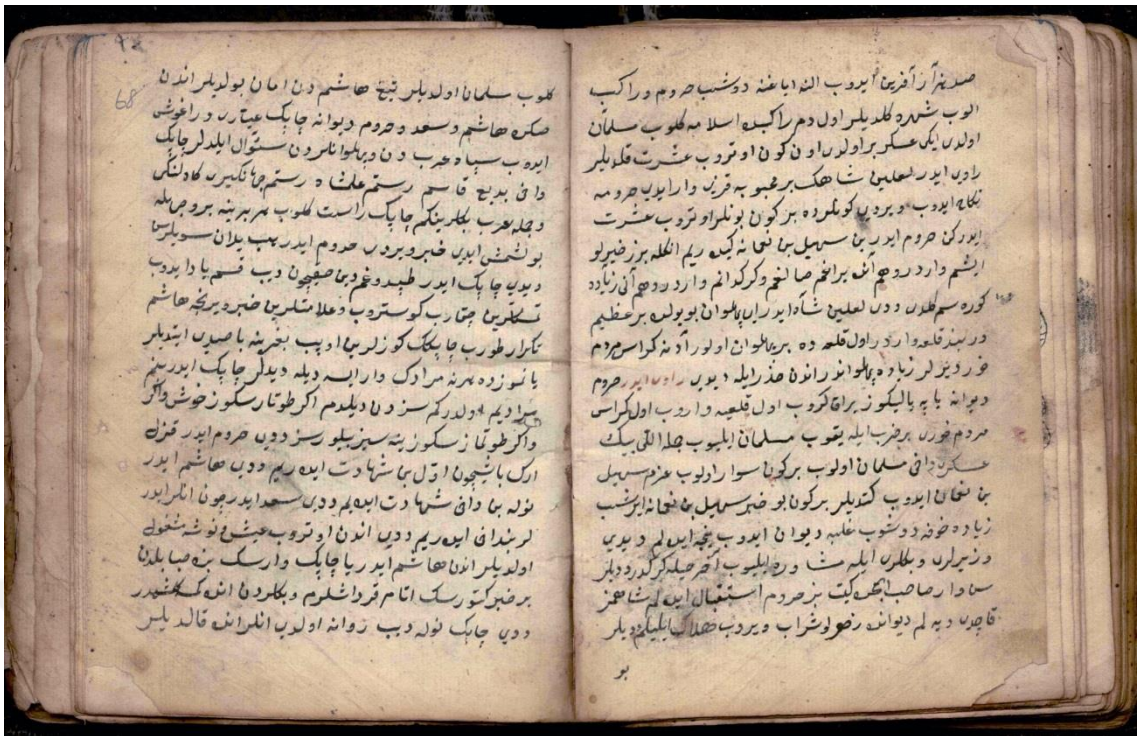 صد هزار آفرین ایدوب النه ایاغنه دوشب حروم وراکب
الوب شهره کلدیلر اول دم راکبده اسلامه کلوب سلمان
اولدی ایکی عسکر بر اولدی اون کون اوتروب عشرت قلدیلر
راوی ایدر لعلین شاهک بر محبوبه قزی وار ایدی حرومه
نکاح ایدوب ویردی کونلرده بر کون بونلر اوتروب عشرت
ایدرکن حروم ایدر بن سهیل بن نعمانه کیده ریم انکله بر ضیرلو
ایشم وارد روهم آتی براتخم صانخم وکرکدانم وارد روهم آنی زیاده
کوره سم کلدی ددی لعلین شاه ایدر ای پهلوان بو یولده بر عظیم
دربند قلعه وارد راول قلعه ده بر پهلوان اولور آدنه کراس مردم
خور دیرلر زیاده پهلواندر اندن حذر ایله دیدی راوی ایدر حروم
دیوانه یا په یالیکوز براق کروب اول قلعیه واروب اول کراس
مردم خوری بر ضرب ایله یقوب مسلمان ایلیوب جمله اللی بیک
عسکری داخی مسلمان اولوب بر کون سوار اولوب عزم سهیل
بن نعمان ایدوب کتدیلر بر کون بو خبر سهیل بن نعمانه ایرشب
زیاده خوفه دوشوب غلبه دیوان ایدوب نیجه ایده لم دیدی
وزیرلری وبکلری ایله مشاوره ایلیوب آخر حیله کرکدر ددیلر
سن وار صاحب کیت بز حروم استقبال ایده لم شاهمز
قاچدی دیه لم دیوانه شراب ویروب هلاک ایلیلم ددیلر
بو
68
کلوب سلمان اولدیلر تیغ هاشم دن امان بولدیلر اندن
صکره هاشم وسعد وحروم دیوانه چاپک عیاری دراغوش
ایدوب سپاه عرب دن وپهلوانلردن سئوال ایلدلر چاپک
داخی بدیع قاسم رستم علمشاه رستم جهانکیری کادلنکی
وجمله عرب بکلرینکم چاپک راست کلوب هر برینه بر وجهله
بولشمش ایدی خبر ویردی حروم ایدر هپ یلان سویلرس
دیدی چاپک ایدر طپدوغم دین صقیچون دیب قسم یاد ایدوب
نشانلرین چقارب کوستروب وعلامتلرین خبر ویرنجه هاشم
تکرار طورب چاپکک کوزلرین اوپب بغرینه باصدی ایتدیلر
یا نموزده هر نه مرادک وار ایسه دیله دیدلر چاپک ایدر بنم
مرادیم اولدر کم سزدن دیلدم اکر طوتارسکوز خوش واکر
واکر طوتمازسکوز ینه سیز بیلورسز ددی حروم ایدر قزل
ارک باشیچون اول بن شهادت ایده ریم ددی هاشم ایدر
نوله بن داخی شهادت ایده لم ددی سعد ایدر چون انلر ایدر
لر بنداخی ایده ریم ددی اندن اوتروب عیش ونوشه مشغول
اولدیلر اندن هاشم ایدر یا چاپک وارسک بزه صبابلدن
بر خبر کتورسک اتام قرداشلرم وبکلردن انده کلمشدر
ددی چاپک نوله دیب روانه اولدی انلر انده قالدیلر